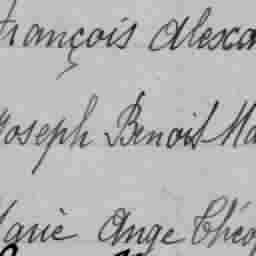 François Alexa
Joseph Benoit Ma
Marie Ange Théo